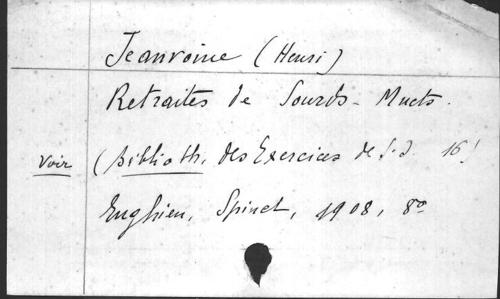 Jeanroine (Henri)
Retraites de Sourds-Muets.
voir (Biblioth. des Exercices de S. J. 16)
Enghien, Spinet, 1908, 8º